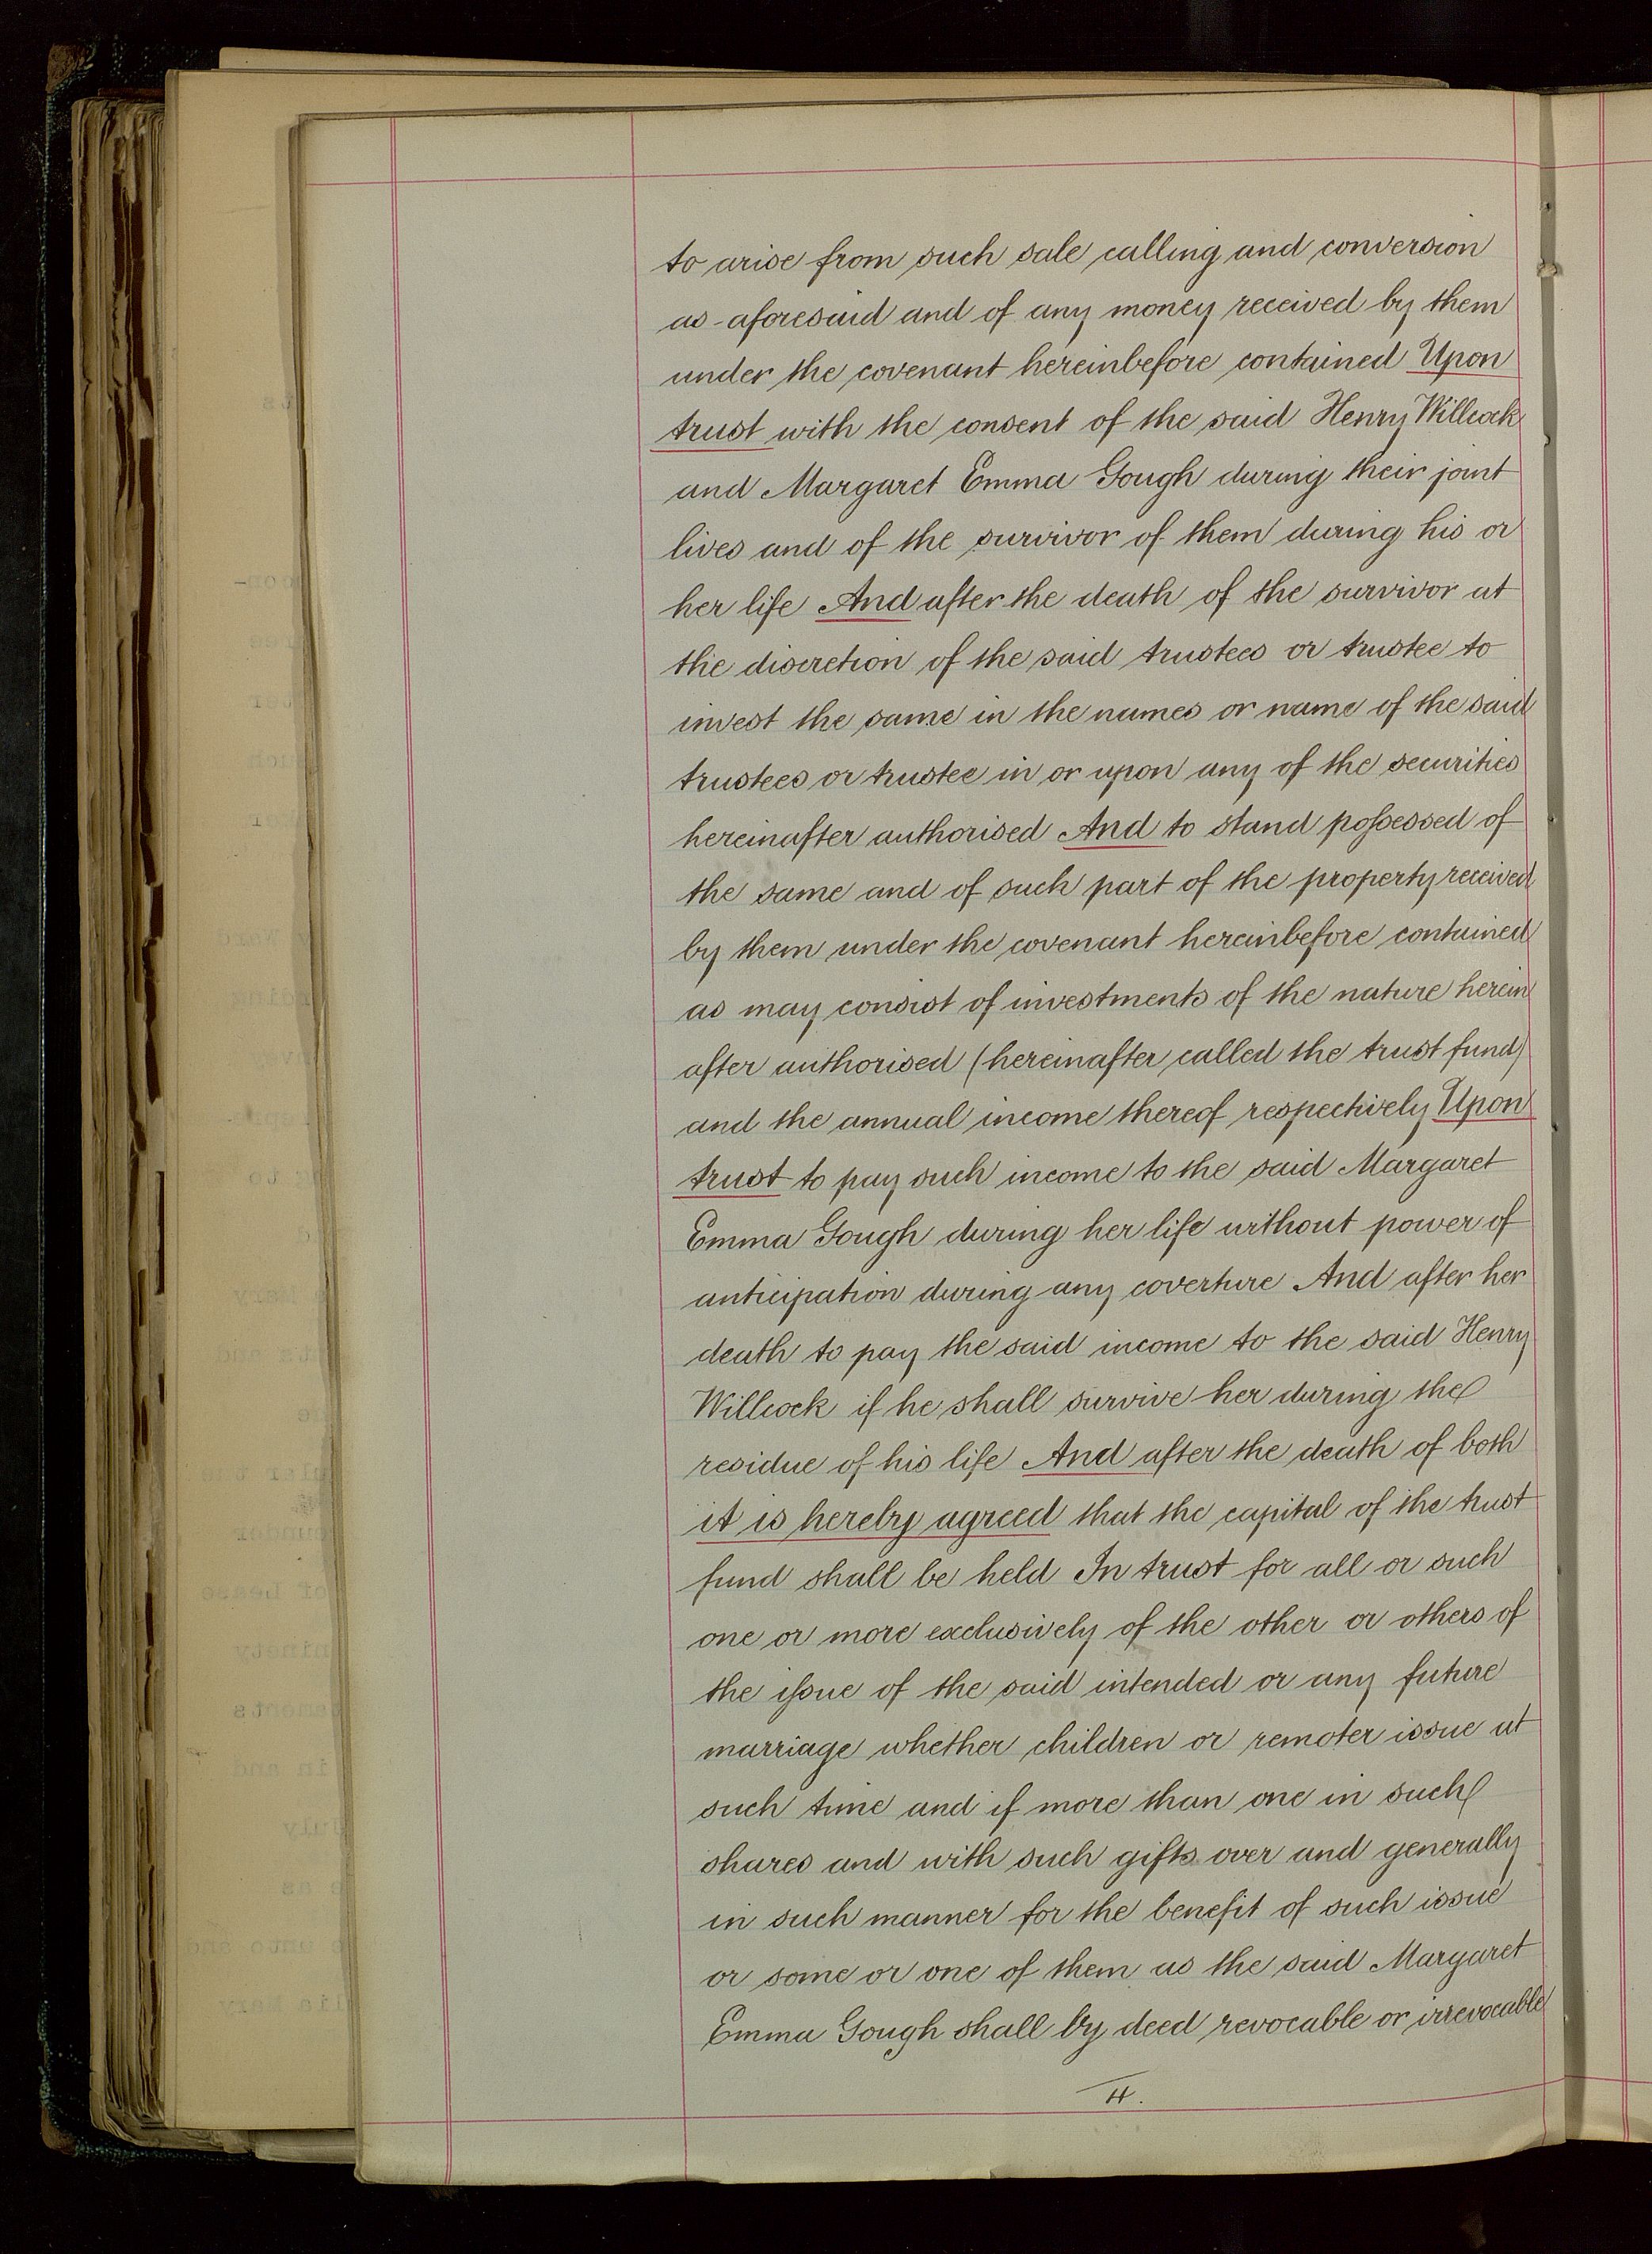 to arise from such sale calling and conversion
as aforesaid and of any money received by them
under the covenant hereinbefore contained Upon
trust with the consent of the said Henry Willcock
and Margaret Emma Gough during their joint
lives and of the survivor of them during his or
her life And after the death of the survivor at
the discretion of the said trustees or trustee to
invest the same in the names or name of the said
trustees or trustee in or upon any of the securities
hereinafter authorised And to stand possessed of
the same and of such part of the property received
by them under the covenant hereinbefore contained
as may consist of investments of the nature herein
after authorised (hereinafter called the trust fund)
and the annual income thereof respectively Upon
trust to pay such income to the said Margaret
Emma Gough during her life without power of
anticipation during any coverture And after her
death to pay the said income to the said Henry
Willcock if he shall survive her during the
residue of his life And after the death of both
it is hereby agreed that the capital of the trust
fund shall be held In trust for all or such
one or more exclusively of the other or others of
the issue of the said intended or any future
marriage whether children or remoter issue at
such time and if more than one in such
shares and with such gifts over and generally
in such manner for the benefit of such issue
or some or one of them as the said Margaret
Emma Gough shall by deed revocable or irrevocable
4.